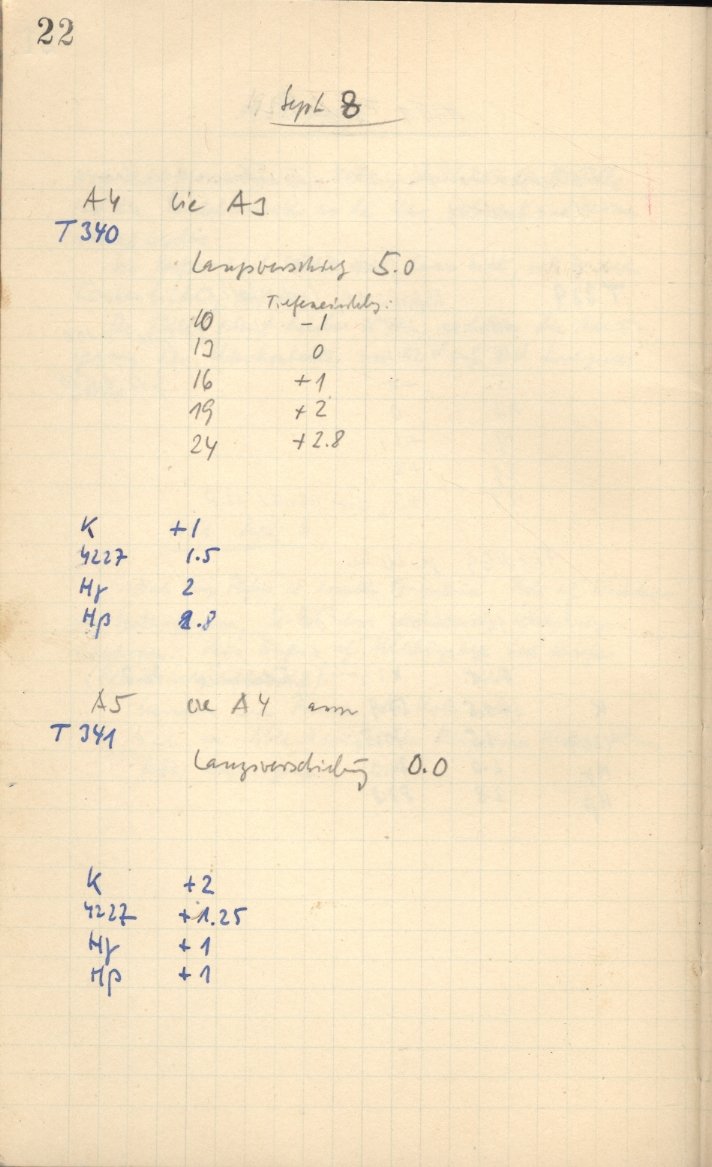 22
Sept 8
A4 wie A3
T 340
Längsverschiebg 5.0
Tiefeneinstellg:
10 -1
13 0
16 +1
19 +2
24 +2.8
K +1
4227 1.5
Hγ 2
Hβ 2.8
A5 wie A4
T 341
Längsverschiebung 0.0
K +2
4227 +1.25
Hγ +1
Hβ +1